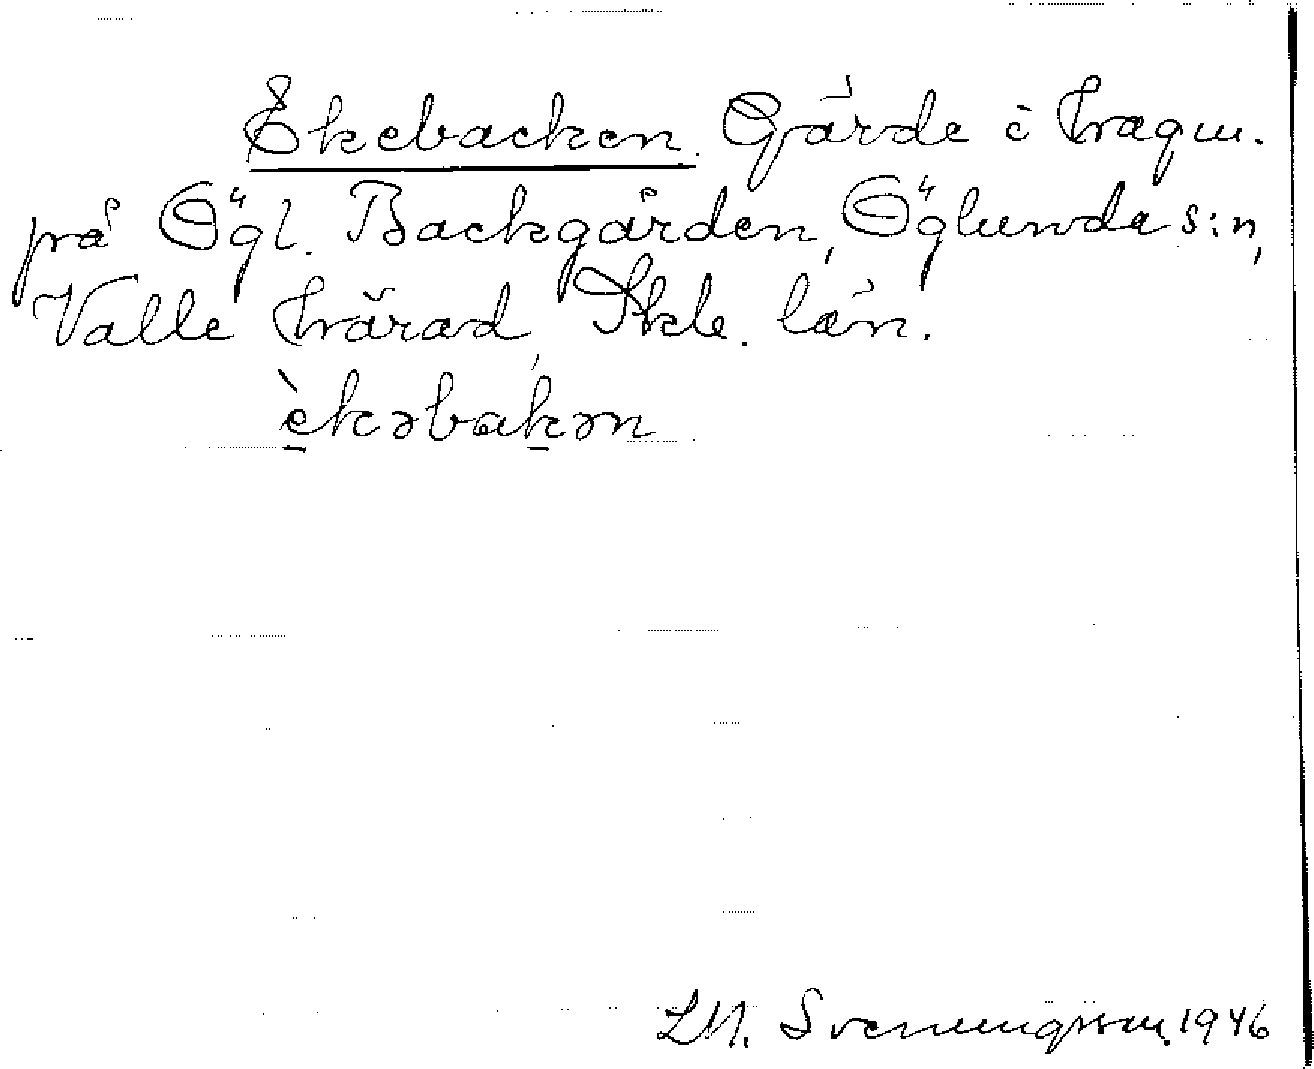 Ekebacken. Gärde i hagm.
på Ögl. Backgården, Öglunda s:n,
Valle härad, Skb. län.
èkəbakən
S. Svenungsson. 1946